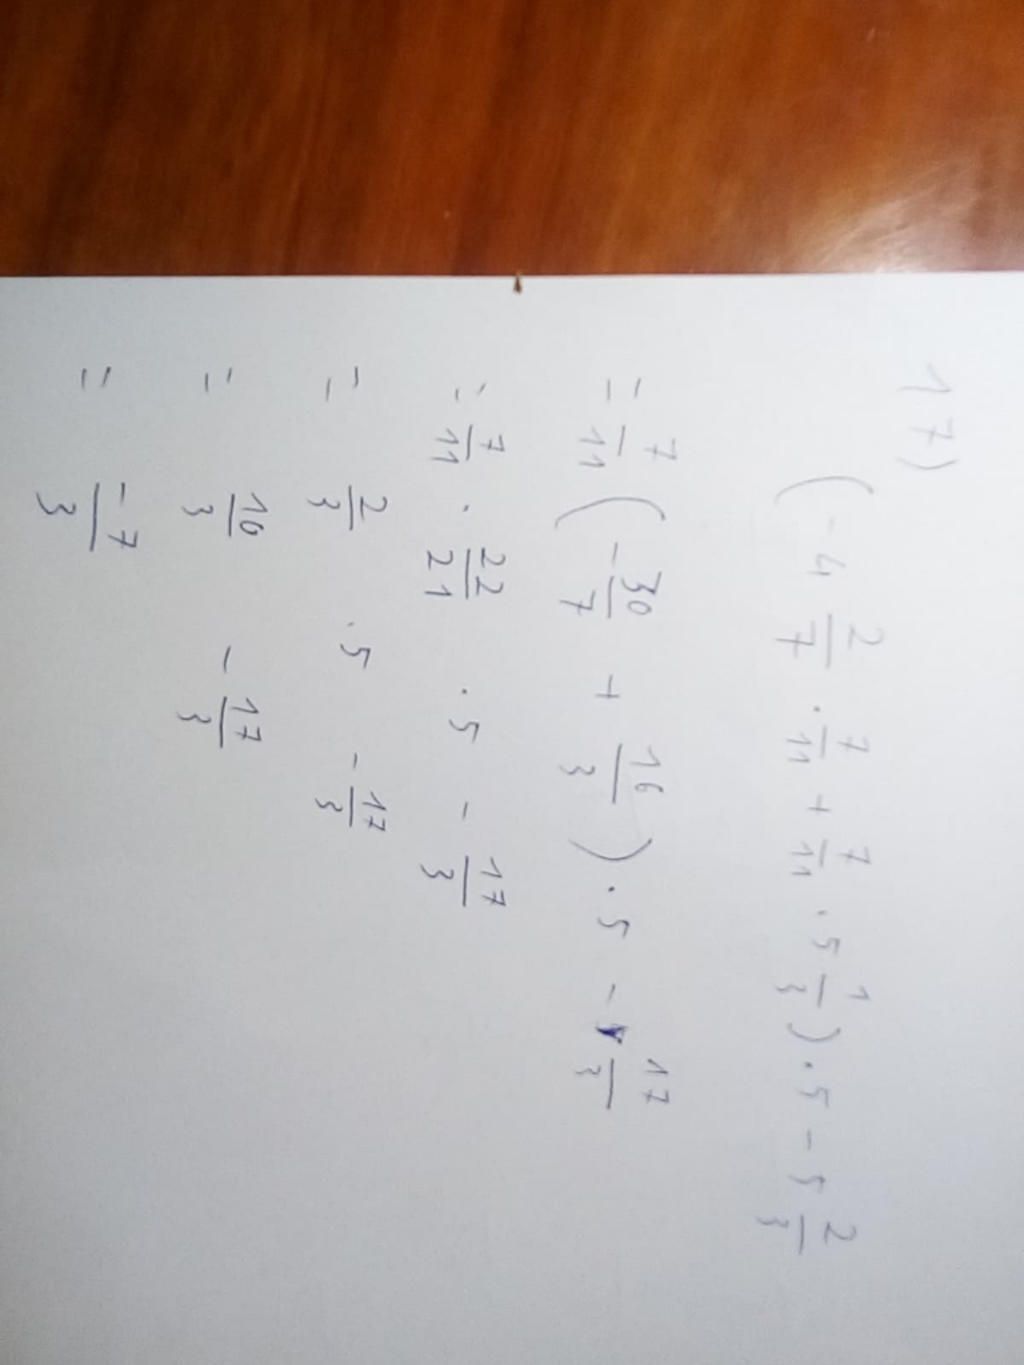 17)
(-4 2/7 · 7/11 + 7/11 · 5 1/3) · 5 - 5 2/3
= 7/11 (-30/7 + 16/3) · 5 - 17/3
= 7/11 · 22/21 · 5 - 17/3
= 2/3 · 5 - 17/3
= 10/3 - 17/3
= -7/3